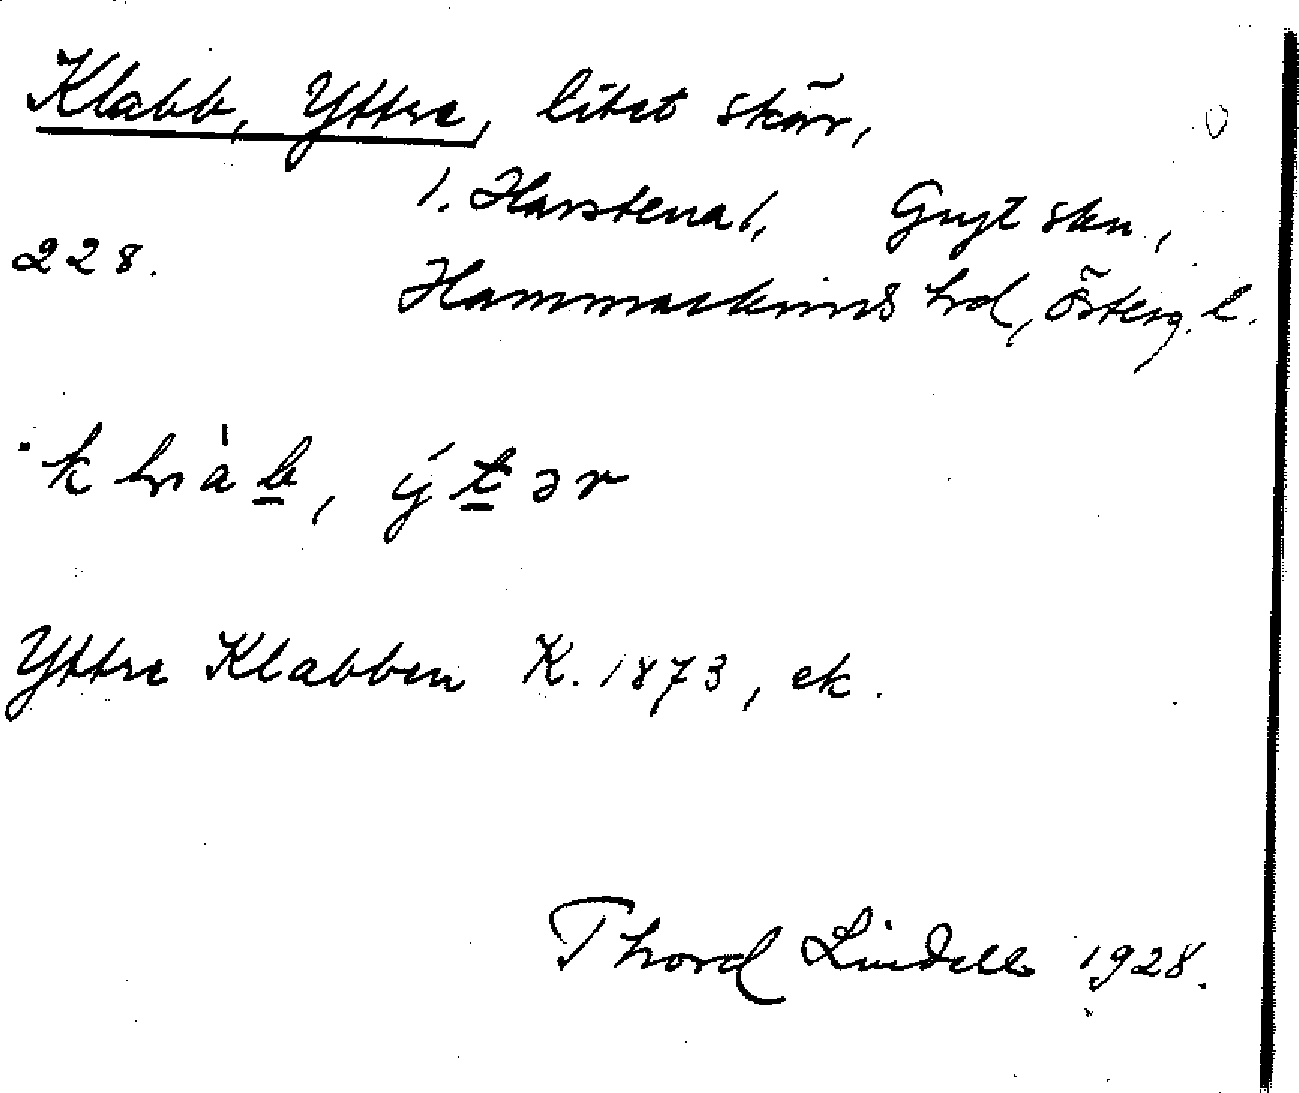 Klabb, Yttre, litet skär,
1. Harstena 1, Gryt skn.,
228.
Hammarkinds hrd, Österg. l.
Yttre Klabben K. 1873, ek.
Thord Lindell 1928.